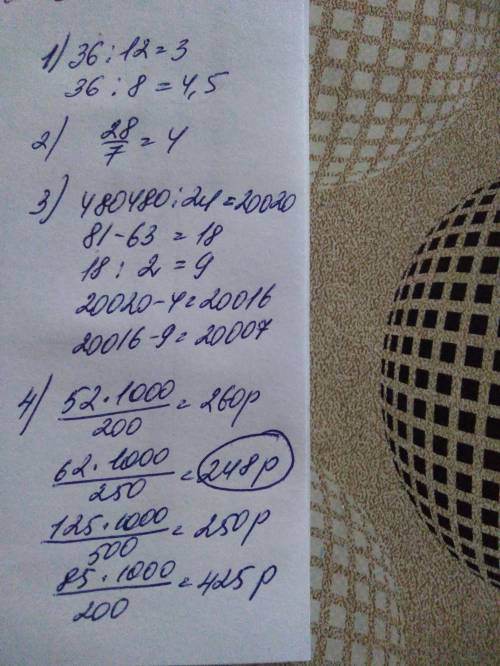 1) 36 : 12 = 3
36 : 8 = 4,5
2) 28/7 = 4
3) 480480 : 24 = 20020
81 - 63 = 18
18 : 2 = 9
20020 - 4 = 20016
20016 - 9 = 20007
4) 52 · 1000/200 = 260р
62 · 1000/250 = 248р
125 · 1000/500 = 250р
85 · 1000/200 = 425р